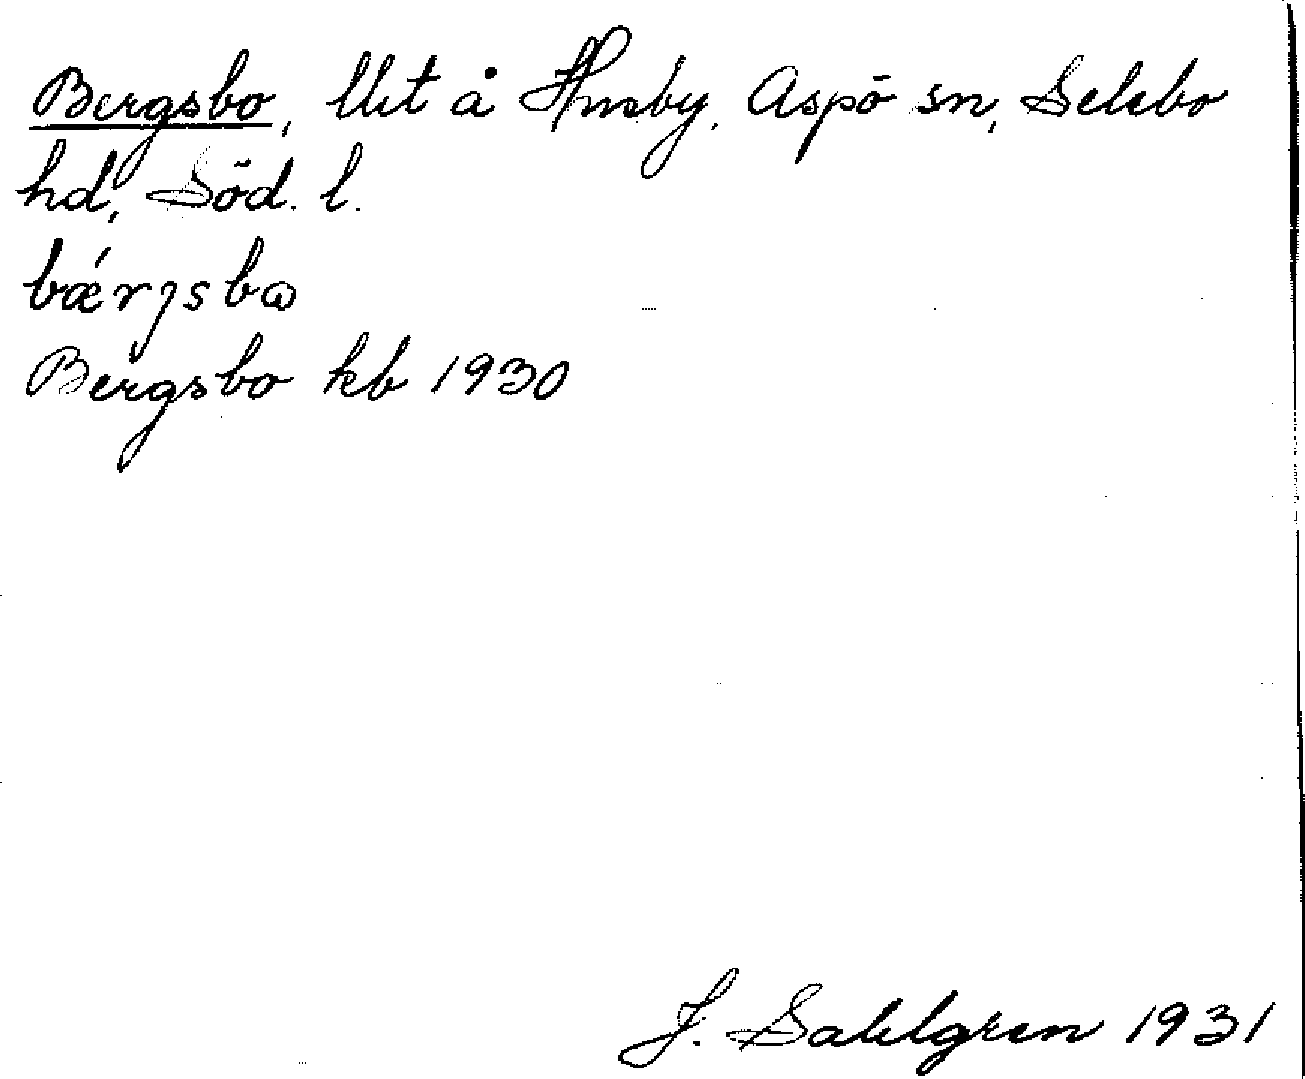 Bergsbo, lht å Husby, Aspö sn, Selebo
hd, Söd. l.
bǽrjsbω
Bergsbo kb 1930
J. Sahlgren 1931